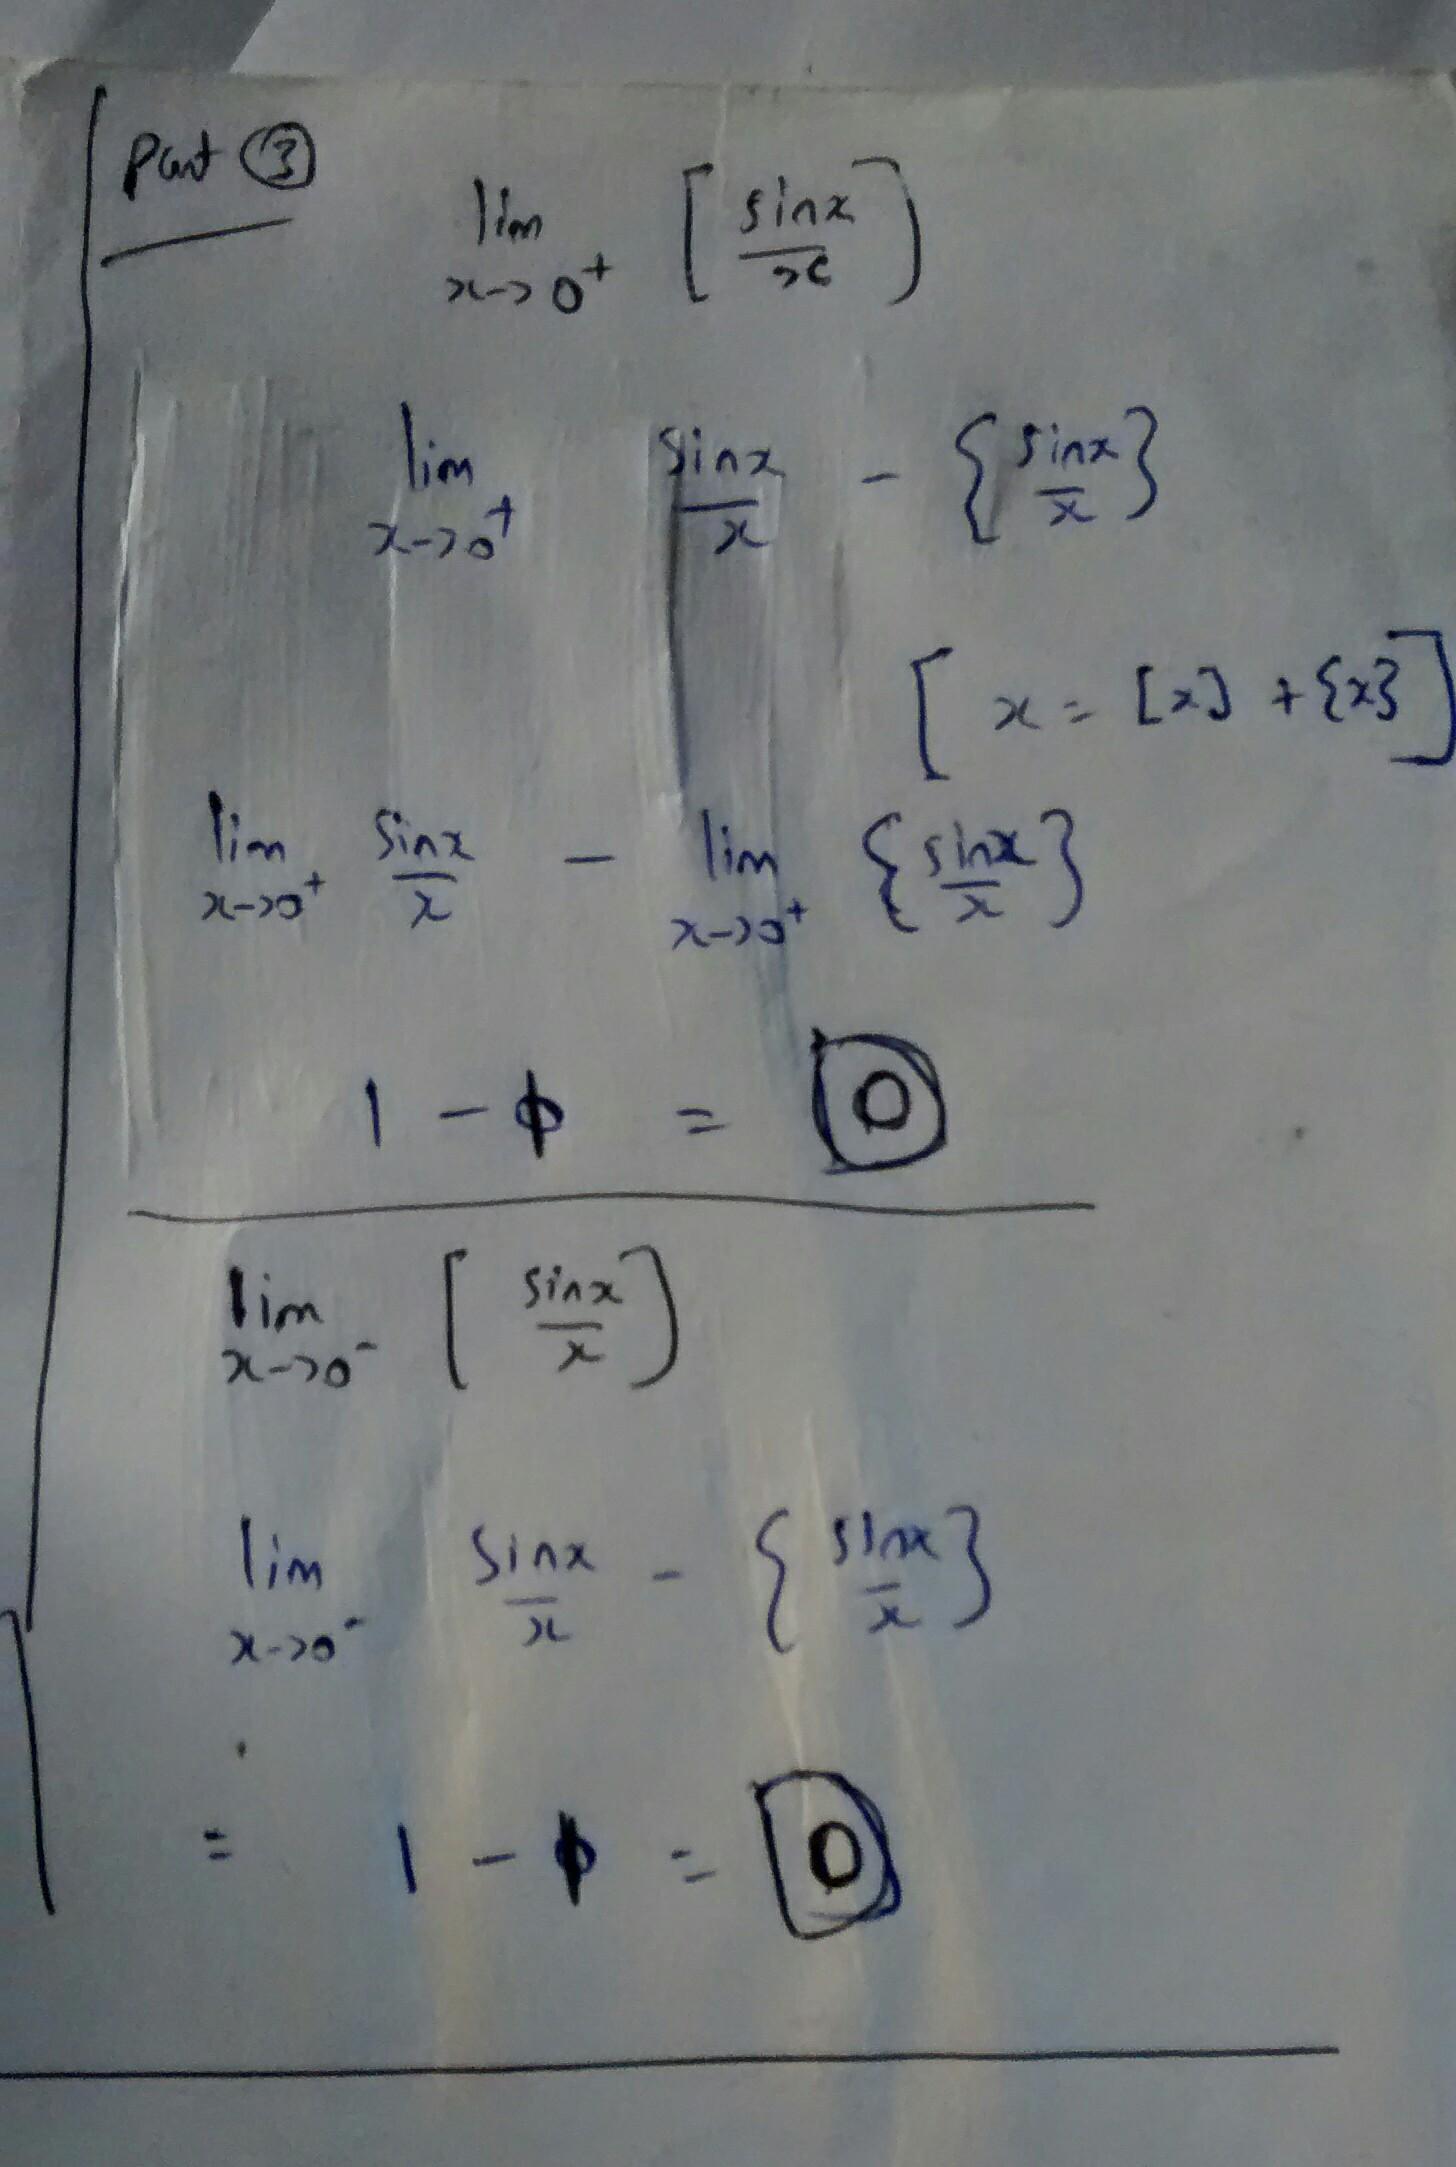 Part ③
lim x→0⁺ [sinx/x]
lim x→0⁺ sinx/x - {sinx/x}
[x = [x] + {x}]
lim x→0⁺ sinx/x - lim x→0⁺ {sinx/x}
1 - = 0
lim x→0⁻ [sinx/x]
lim x→0⁻ sinx/x - {sinx/x}
= 1 - = 0